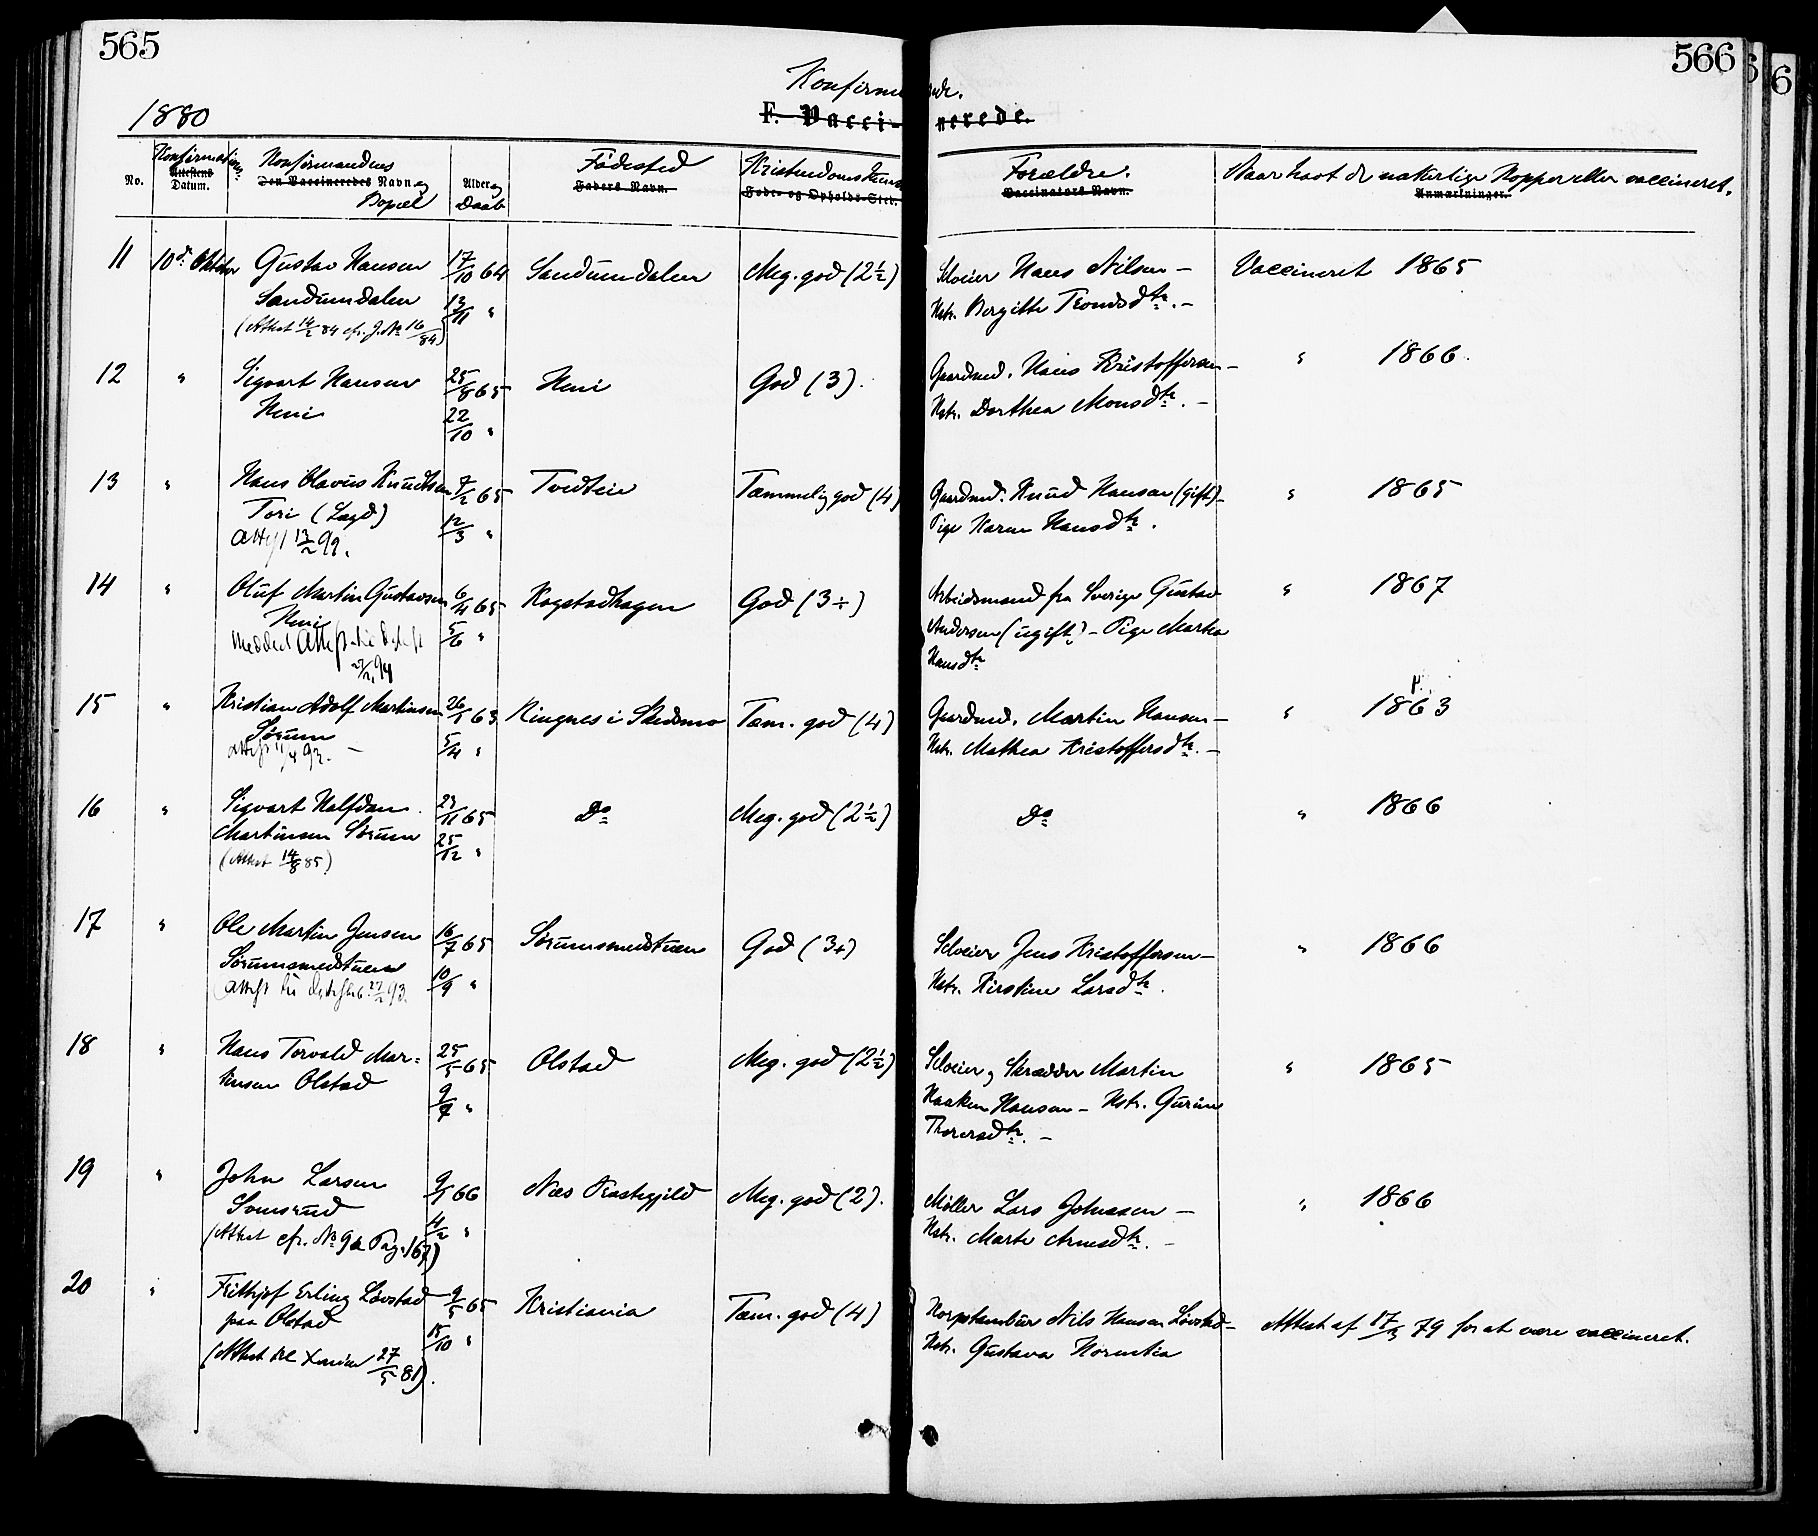 565
566
6
Konfirmerede.
1880
F. Vaccinerede.
No.
Konfirmations
Attestens
Datum.
Konfirmandnes
Den Vaccineredes Navn og
Bopæl
Alder og
Daab
Fødested
Faders Navn.
Kristendomskunds
Føde- og Opholds-Sted.
Forældre.
Vaccinators Navn.
Naar havt de naturlige Kopper eller vaccineret.
Anmærkninger.
11 10de Oktober Gustav Hansen 17/10 64 Sandumdalen Meg. god (2½) Selveier Hans Nilsen – Vaccineret 1865
Sandumdalen 13/11 " Hstr. Bergitte Trondsdtr. –
(Attest 14/2 84 cfr. J. No 16/84)
12 " Sigvart Hansen 25/8 65 Heni God (3). Gaardmd. Hans Kristoffersen – " 1866.
Heni 22/10 " Hstr. Dorthea Monsdtr. –
13 " Hans Olavus Knudtsen 7/2 65 Tvedtein Tæmmelig god (4) Gaardmd. Knud Hansen (gift) – " 1865
Tori (Lagd) 12/3 " Pige Karen Hansdtr.
Attest 13/2 99.
14 " Oluf Martin Gustavsen 6/4 65 Kogstadhagen God (3÷) Arbeidsmand fra Sverige Gustav " 1867
Heni 5/6 " Andersen (ugift) – Pige Marta
Meddelt Attest
Hansdtr
15 " Kristian Adolf Martinsen 26/1 63 Ringnes i Skedsmo Tæm. god (4) Gaardmd. Martin Hansen – " 1863
Sørum 5/4 " Hstr. Mathea Kristoffersdtr. –
Attest 11/4 92. –
16 " Sigvart Halfdan 23/11 65 Do Meg. god (2½) Do " 1866
Martinsen Sørum 25/12 "
(Attest 14/8 85)
17 " Ole Martin Jensen 16/7 65 Sørumsmedstuen God (3+) Selveier Jens Kristoffersen – " 1866
Sørumsmedstuen 10/9 " Hstr. Kirstine Larsdtr.
(Attest til 27/2 93.
18 " Hans Torvald Mar= 25/5 65 Olstad Meg. god (2½) Selveier og Skrædder Martin " 1865
tinsen Olstad 9/7 " Haaken Hansen – Hstr. Gurine
Thorersdtr. –
19 " John Larsen 9/1 66 Næs Præstegjeld Meg. god (2). Møller Lars Johnssen – " 1866
Somsrud 4/2 " Hstr. Marte Arnesdtr. –
(Attest cfr. No 9a Pag. 167)
20 " Frithjof Erling Løvstad 9/5 65 Kristiania Tæm. god (4) Korpstambur Nils Hansen Løvstad – Attest af 17/3 79 for at være vaccineret.
paa Olstad 15/10 " Hstr. Gustava Kornelia
(Attest til 27/5 81).